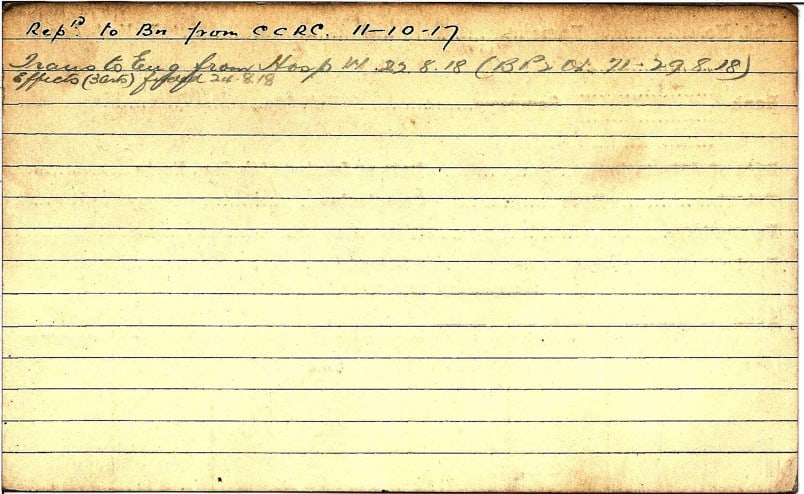 Rep'd to Bn from CCRC. 11-10-17
Trans to Eng from Hosp W. 22.8.18 (BP2 Or 71-29.8.18)
Effects (3 arts) 24.8.18